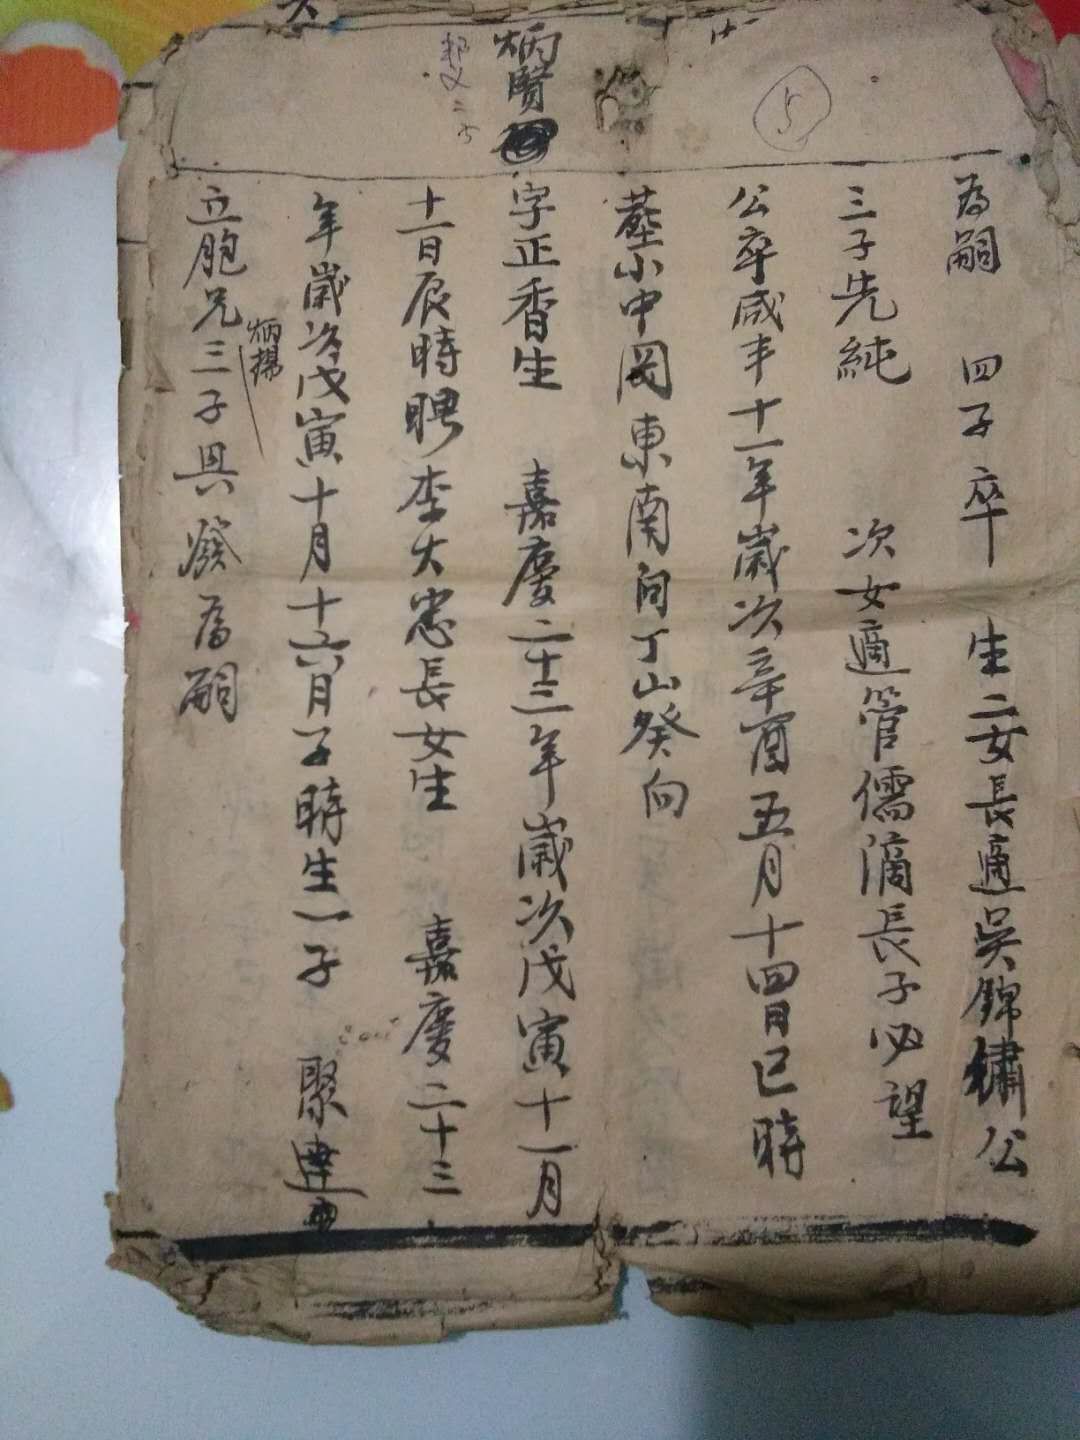 5
炳賢
為嗣 四子卒 生二女長適吳錦繡公
三子先純 次女適管儒滴長子必望
公卒咸丰十一年歲次辛酉五月十四日巳時
塟小中岡東南向丁山癸向
字正香生 嘉慶二十三年歲次戊寅十一月
十一日辰時聘李大忠長女生 嘉慶二十三
年歲次戊寅十月十六日子時生一子 聚達
立胞兄炳揚三子興發為嗣